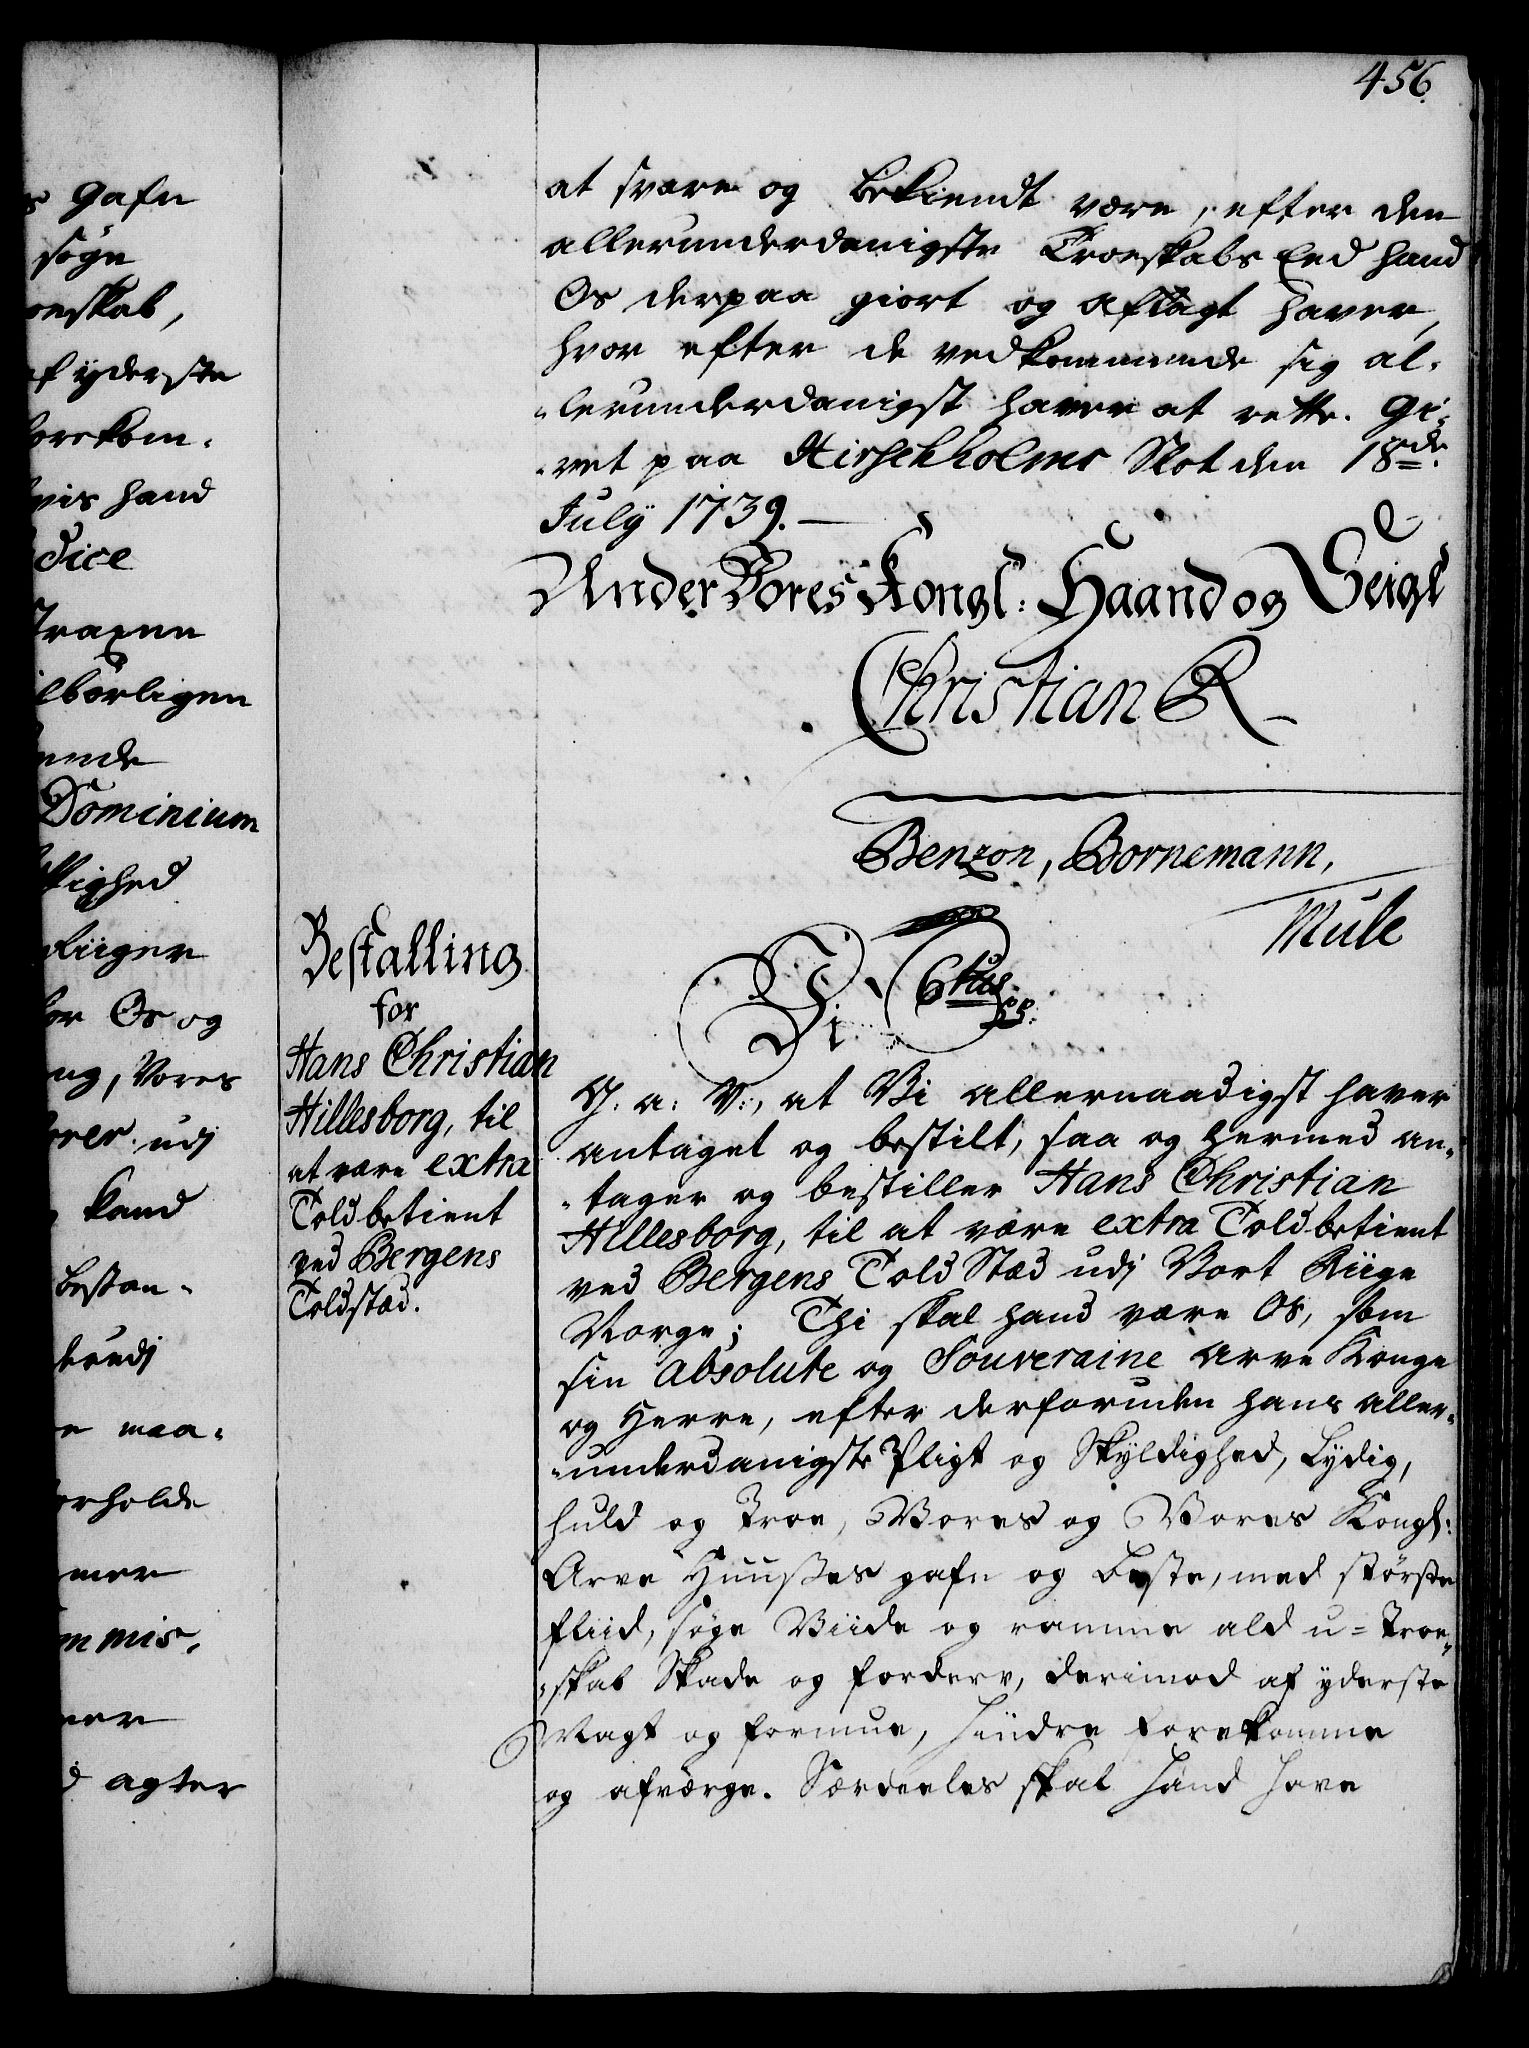 456.
s Gafn
søgn
oeskab,
af yderste
forekom-
vis hand
dice
Traxenn
ilbørligen
ende
Dominium
ktighed
Riiger
for Os og
ng, Vores
orer udj
kand
bestan-
derudj
e maa-
orholde
mer
mmis-
ner
d agter
at svare og bekiendt være, efter den
allerunderdanigste Troeskabs Eed hand
Os derpaa giort og aflagt haver,
hvor efter de vedkommende sig al-
-lerunderdanigst haver at rette. Gi-
-vet paa Hirschholms Slot den 18de
July 1739.
Under Vores Kongl: Haand og Seigl
Christian R
Benzon, Bornemann,
Mule
Bestalling
for
Hans Christian
Hillesborg, til
at være extra
Told betient
ved Bergens
Toldstæd.
Vi C 6tus
G. a: V:, at Vi allernaadigst haver
antaget og bestilt, saa og hermed an-
-tager og bestiller Hans Christian
Hillesborg, til at være extra Told betient
ved Bergens Told Stæd udj Vort Riige
Norge; Thi skal hand være Os, som
sin Absolute og Souveraine Arve Konge
og Herre, efter derforuden hans aller-
-underdanigste Pligt og Skyldighed, Lydig,
huld og troe, Vores og Vores Kongl:
Arve Huuses gafn og beste, med største
fliid, søge Viide og ramme ald u-troe-
-skab Skade og forderv, derimod af yderste
Magt og formue, hindre forekomme
og afværge. Særdeeles skal hand have